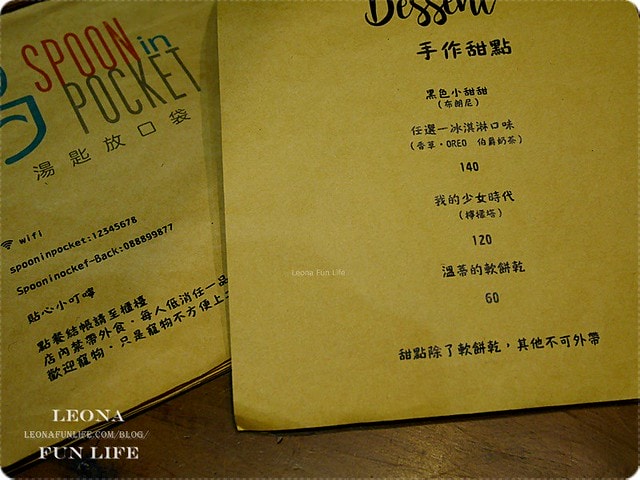 SPOON in
POCKET
湯匙放口袋
wifi
spooninpocket:12345678
Spooninockef-Back:088899877
貼心小叮嚀
點餐結帳請至櫃檯
店內禁帶外食,每人低消任一品
歡迎寵物,只是寵物不方便上
Dessert
手作甜點
黑色小甜甜
(布朗尼)
任選一冰淇淋口味
(香草・OREO 伯爵奶茶)
140
我的少女時代
(檸檬塔)
120
溫蒂的軟餅乾
60
甜點除了軟餅乾,其他不可外帶
Leona Fun Life
LEONA
LEONAFUNLIFE.COM/BLOG/
FUN LIFE